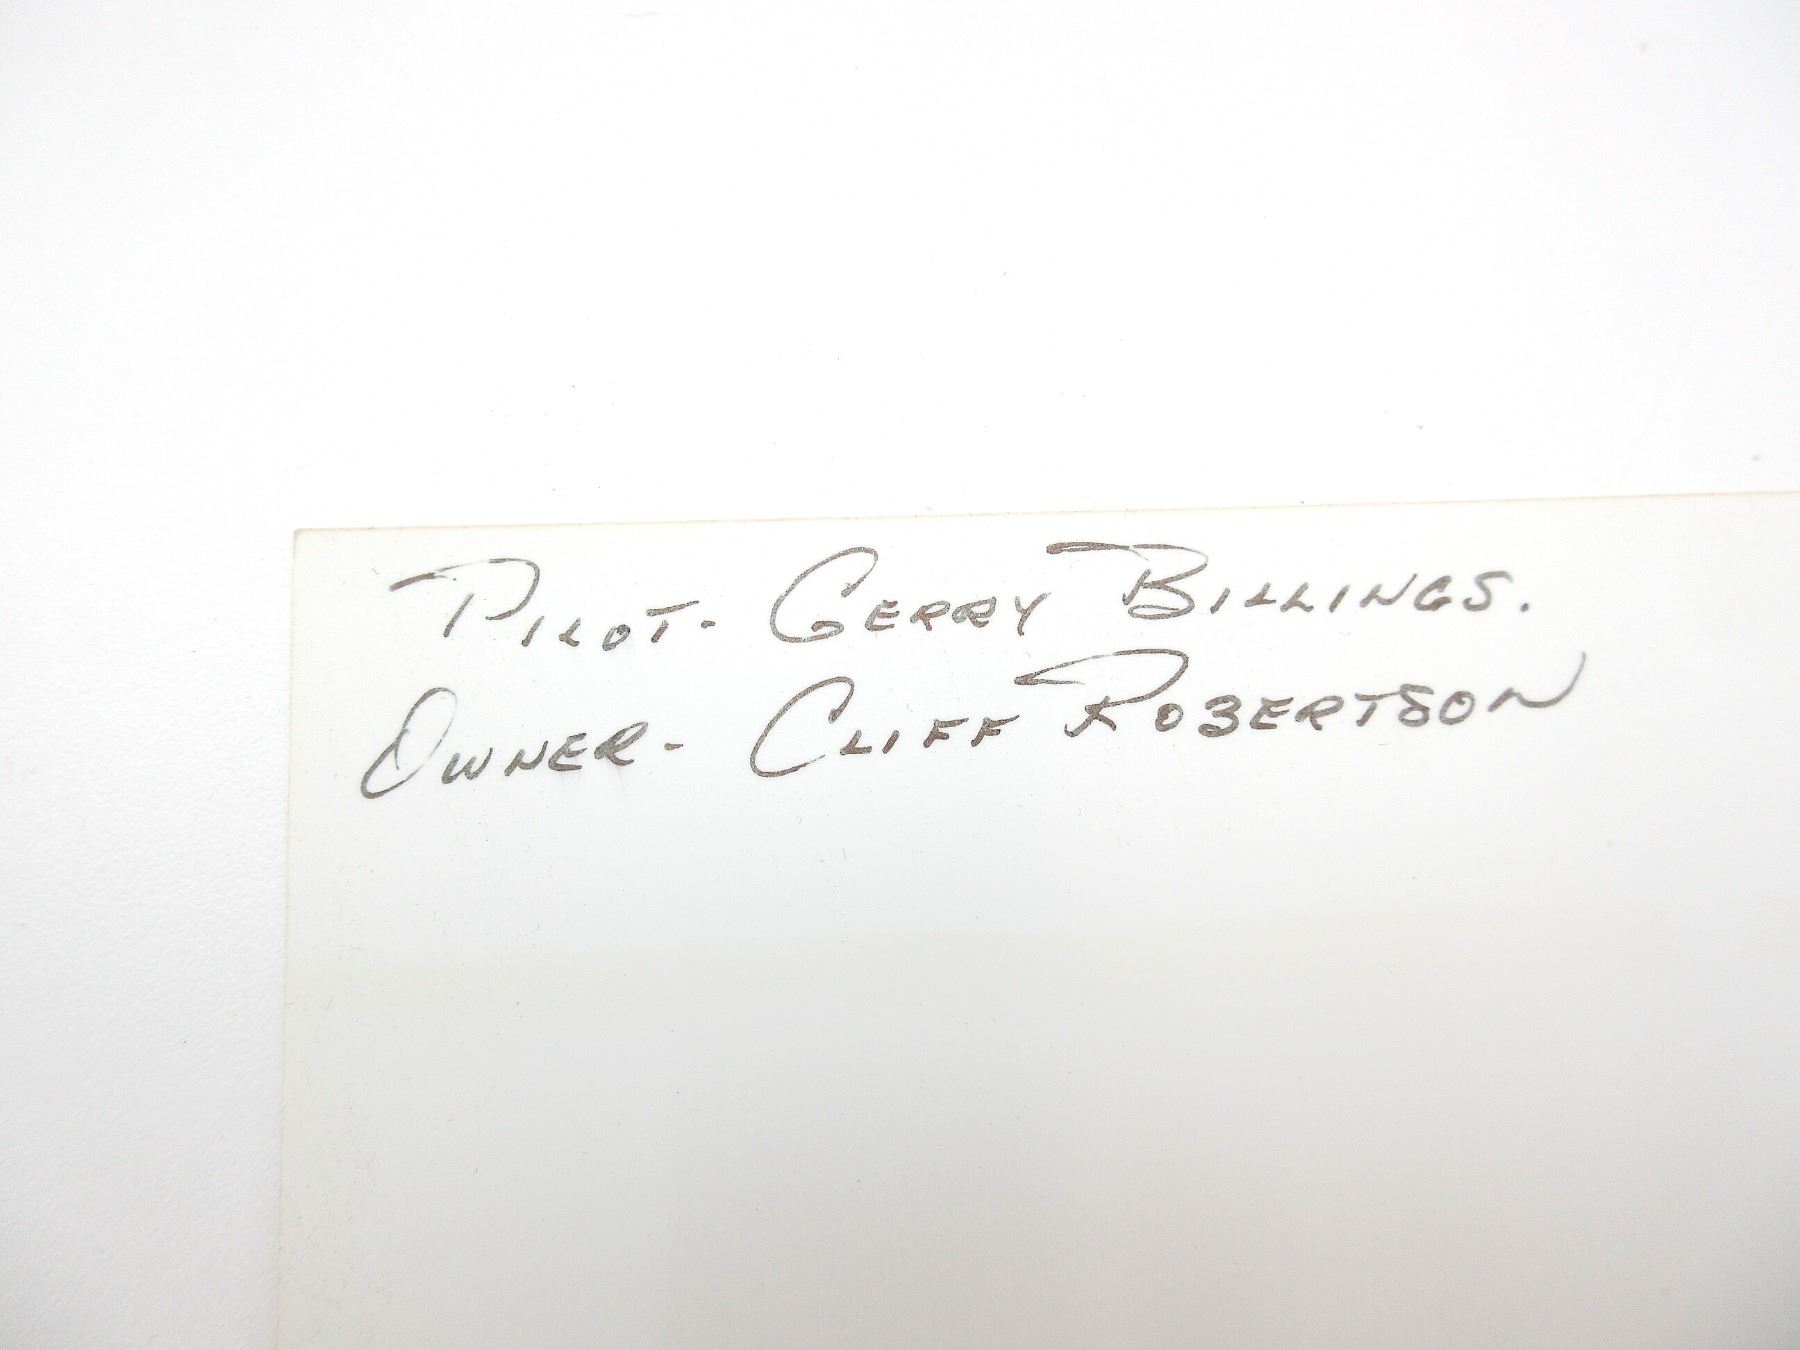 PILOT- GERRY BILLINGS.
OWNER- CLIFF ROBERTSON